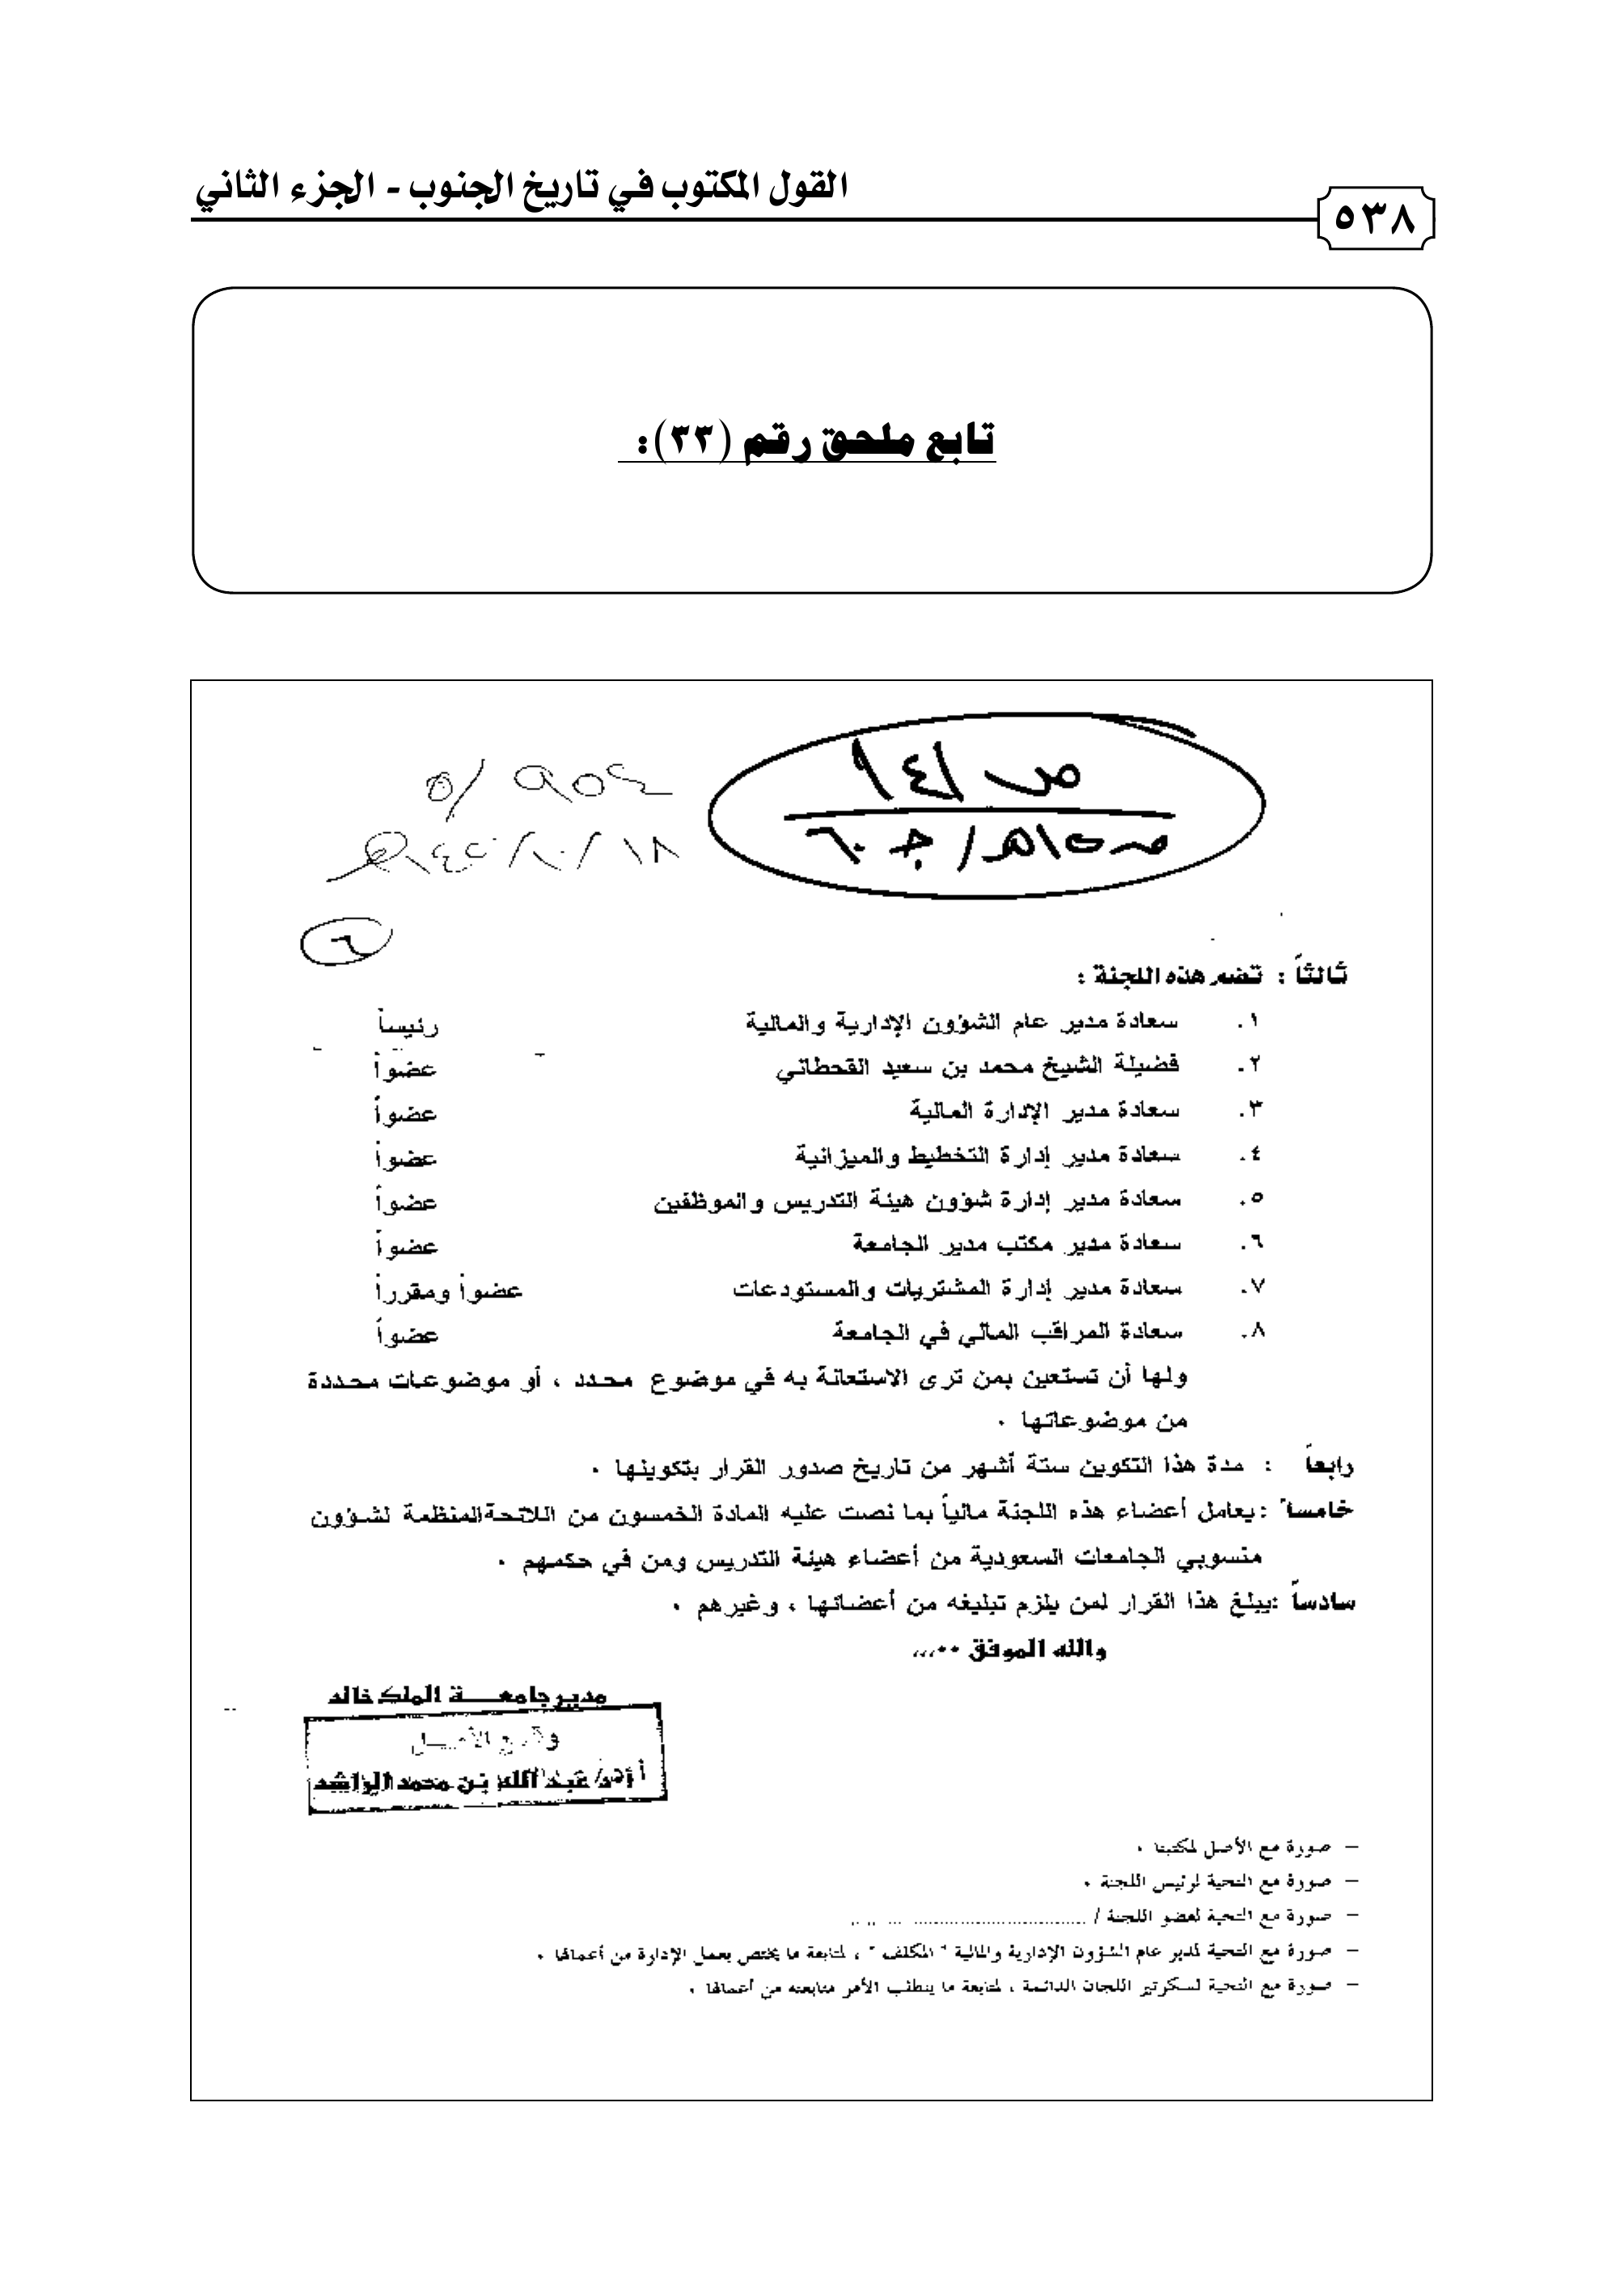 القول المكتوب في تاريخ الجنوب - الجزء الثاني
٥٣٨
تابع ملحق رقم (٣٣):
٦
ثالثاً : تضم هذه اللجنة :
١. سعادة مدير عام الشؤون الإدارية والمالية رئيساً
٢. فضيلة الشيخ محمد بن سعيد القحطاني عضواً
٣. سعادة مدير الإدارة المالية عضواً
٤. سعادة مدير إدارة التخطيط والميزانية عضواً
٥. سعادة مدير إدارة شؤون هيئة التدريس والموظفين عضواً
٦. سعادة مدير مكتب مدير الجامعة عضواً
٧. سعادة مدير إدارة المشتريات والمستودعات عضواً ومقرراً
٨. سعادة المراقب المالي في الجامعة عضواً
ولها أن تستعين بمن ترى الاستعانة به في موضوع محدد ، أو موضوعات محددة
من موضوعاتها .
رابعاً : مدة هذا التكوين ستة أشهر من تاريخ صدور القرار بتكوينها .
خامساً : يعامل أعضاء هذه اللجنة مالياً بما نصت عليه المادة الخمسون من اللائحة المنظمة لشؤون
منسوبي الجامعات السعودية من أعضاء هيئة التدريس ومن في حكمهم .
سادساً : يبلغ هذا القرار لمن يلزم تبليغه من أعضائها ، وغيرهم .
والله الموفق ..،،،
مدير جامعــــة الملك خالد
أ.د/ عبد الله بن محمد الراشد
– صورة مع الأصل لمكتبنا .
– صورة مع التحية لرئيس اللجنة .
– صورة مع التحية لعضو اللجنة / ..............................
– صورة مع التحية لمدير عام الشؤون الإدارية والمالية " المكلف " ، لمتابعة ما يختص بعمل الإدارة من أعمالها .
– صورة مع التحية لسكرتير اللجان الدائمة ، لمتابعة ما يتطلب الأمر متابعته من أعمالها .